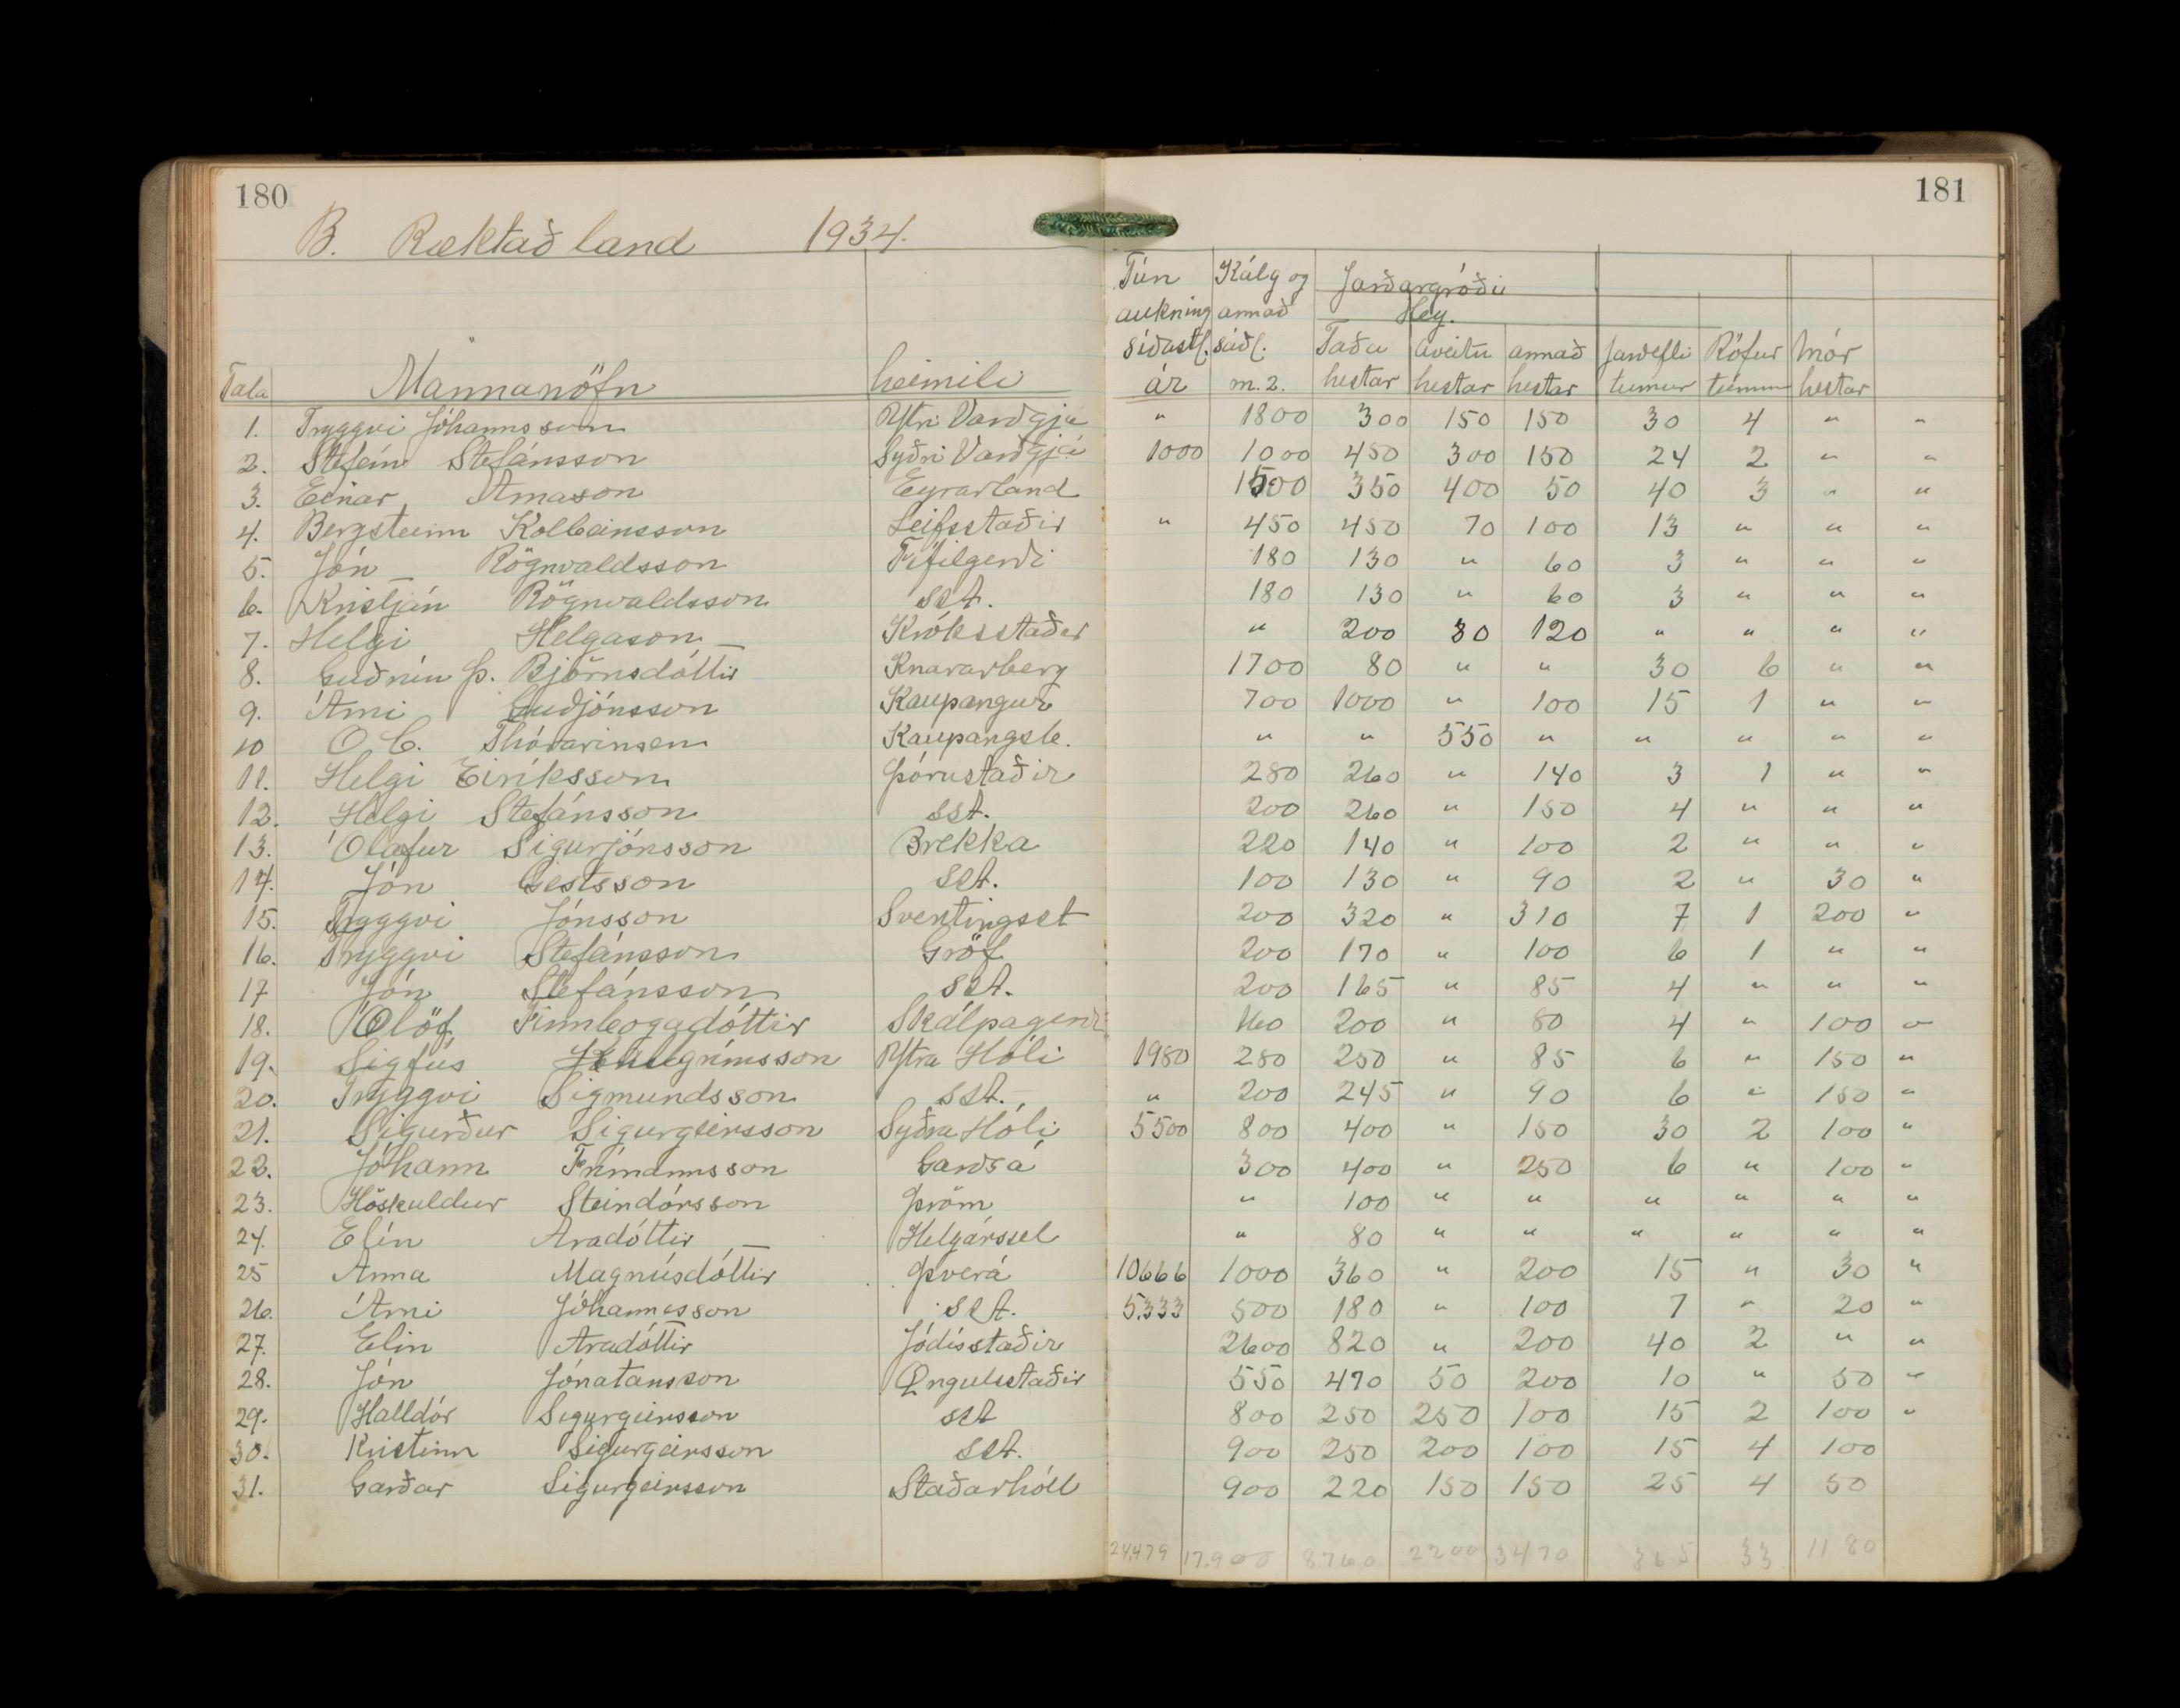 180
181
B. Ræktað land 1934.
Tún Kálg og Jarðargróði
aukning annað Hey.
síðastl. sáðl. Taða áveitu annað Jarðepli Rófur Mór
Tala Mannanöfn heimili ár m.2. hestar hestar hestar tunnur tunnur hestar
1. Tryggvi Jóhannsson Ytri Varðgjá " 1800 300 150 150 30 4 " "
2. Stefán Stefánsson Syðri Varðgjá 1000 1000 450 300 150 24 2 " "
3. Einar Árnason Eyrarland 1500 350 400 50 40 3 " "
4. Bergsteinn Kolbeinsson Leifsstaðir " 450 450 70 100 13 " " "
5. Jón Rögnvaldsson Fífilgerði 180 130 " 60 3 " " "
6. Kristján Rögnvaldsson sst. 180 130 " 60 3 " " "
7. Helgi Helgason Króksstaðir " 200 80 120 " " " "
8. Guðrún Þ. Björnsdóttir Knararberg 1700 80 " " 30 6 " "
9. Árni Guðjónsson Kaupangur 700 1000 " 100 15 1 " "
10 O C. Thórarinsen Kaupangsb. " " 550 " " " " "
11. Helgi Eiríksson Þórustaðir 280 260 " 140 3 1 " "
12. Helgi Stefánsson sst. 200 260 " 150 4 " " "
13. Ólafur Sigurjónsson Brekka 220 140 " 100 2 " " "
14. Jón Gestsson sst. 100 130 " 90 2 " 30 "
15. Tryggvi Jónsson Svertingsst 200 320 " 310 7 1 200 "
16. Tryggvi Stefánsson Gröf 200 170 " 100 6 1 " "
17 Jón Stefánsson sst. 200 165 " 85 4 " " "
18. Ólöf Finnbogadóttir Skálpagerði 160 200 " 80 4 " 100 "
19. Sigfús Hallgrímsson Ytra Hóli 1980 280 250 " 85 6 " 150 "
20. Tryggvi Sigmundsson sst. " 200 245 " 90 6 " 150 "
21. Sigurður Sigurgeirsson Syðra Hóli 5500 800 400 " 150 30 2 100 "
22. Jóhann Frímannsson Garðsá 300 400 " 250 6 " 100 "
23. Höskuldur Steindórsson Þröm " 100 " " " " " "
24. Elín Aradóttir Helgársel " 80 " " " " " "
25 Anna Magnúsdóttir Þverá 10666 1000 360 " 200 15 " 30 "
26. Árni Jóhannesson sst. 5.333 500 180 " 100 7 " 20 "
27. Elin Aradóttir Jódísstaðir 2600 820 " 200 40 2 " "
28. Jón Jónatansson Öngulsstaðir 550 470 50 200 10 " 50 "
29. Halldór Sigurgeirsson sst 800 250 250 100 15 2 100 "
30. Kristinn Sigurgeirsson sst. 900 250 200 100 15 4 100
31. Garðar Sigurgeirsson Staðarhóll 900 220 150 150 25 4 50
24.479 17.900 8.760 2200 3470 365 33 1180